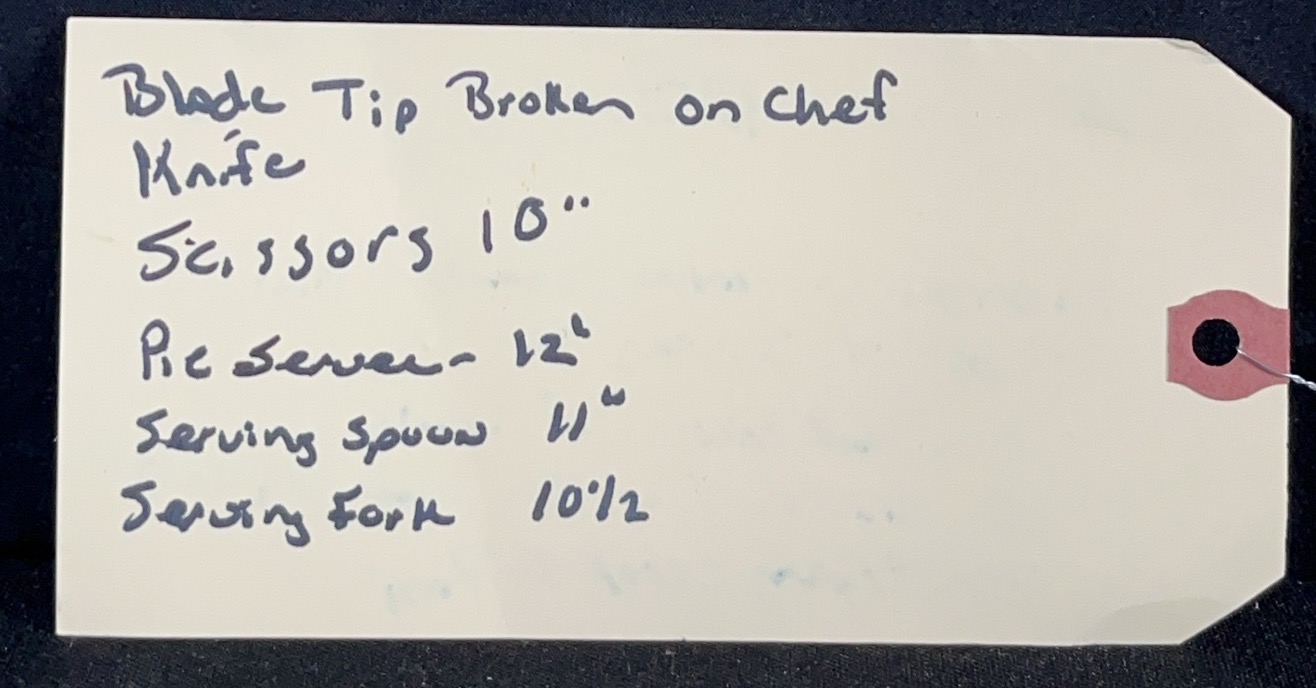 Blade Tip Broken on Chef
Knife
Scissors 10"
Pie Server - 12"
Serving Spoon 11"
Serving Fork 10 1/2